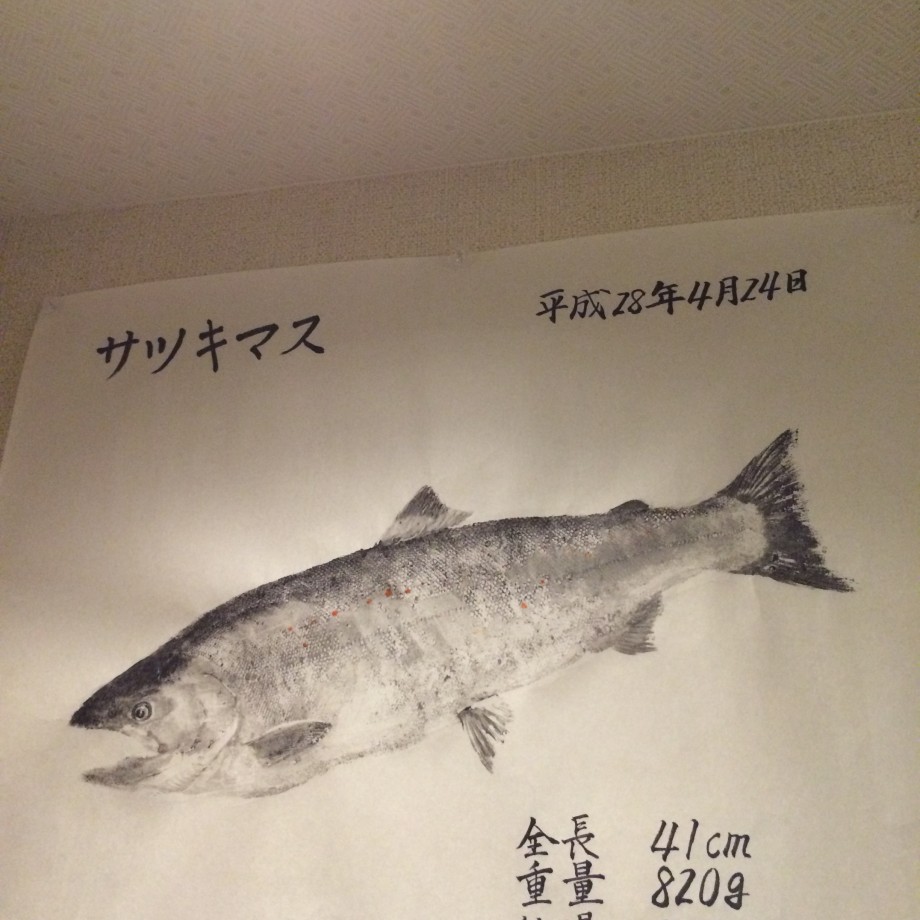 サツキマス
平成28年4月24日
全長 41cm
重量 820g